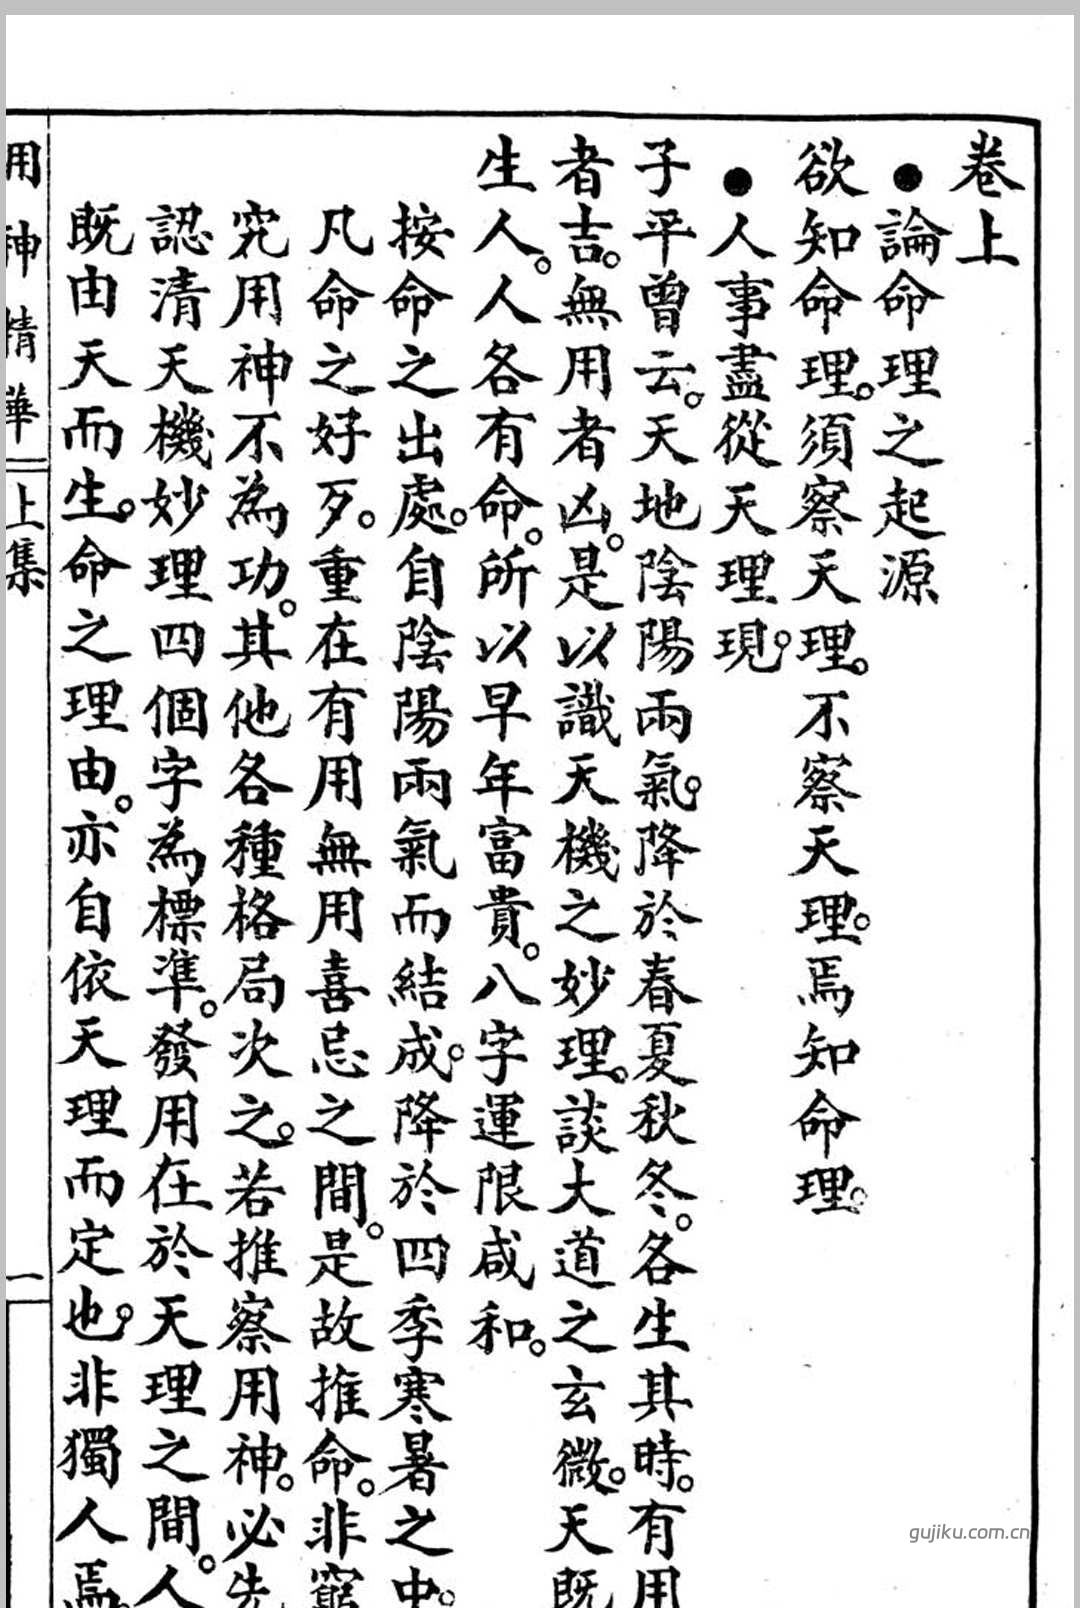 卷上
●論命理之起源
欲知命理。須察天理。不察天理。焉知命理。
●人事盡從天理現。
子平曾云。天地陰陽兩氣。降於春夏秋冬。各生其時。有用
者吉。無用者凶。是以識天機之妙理。談大道之玄微。天既
生人。人各有命。所以早年富貴。八字運限咸和。
按命之出處。自陰陽兩氣而結成。降於四季寒暑之中。
凡命之好歹。重在有用無用喜忌之間。是故推命。非窮
究用神不為功。其他各種格局次之。若推察用神。必先
認清天機妙理四個字為標準。發用在於天理之間。人
既由天而生。命之理由。亦自依天理而定也。非獨人焉。
用神精華 上集 一
gujiku.com.cn